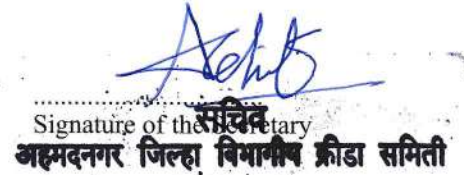 सचिव
Signature of the Secretary
अहमदनगर जिल्हा विभागीय क्रीडा समिती